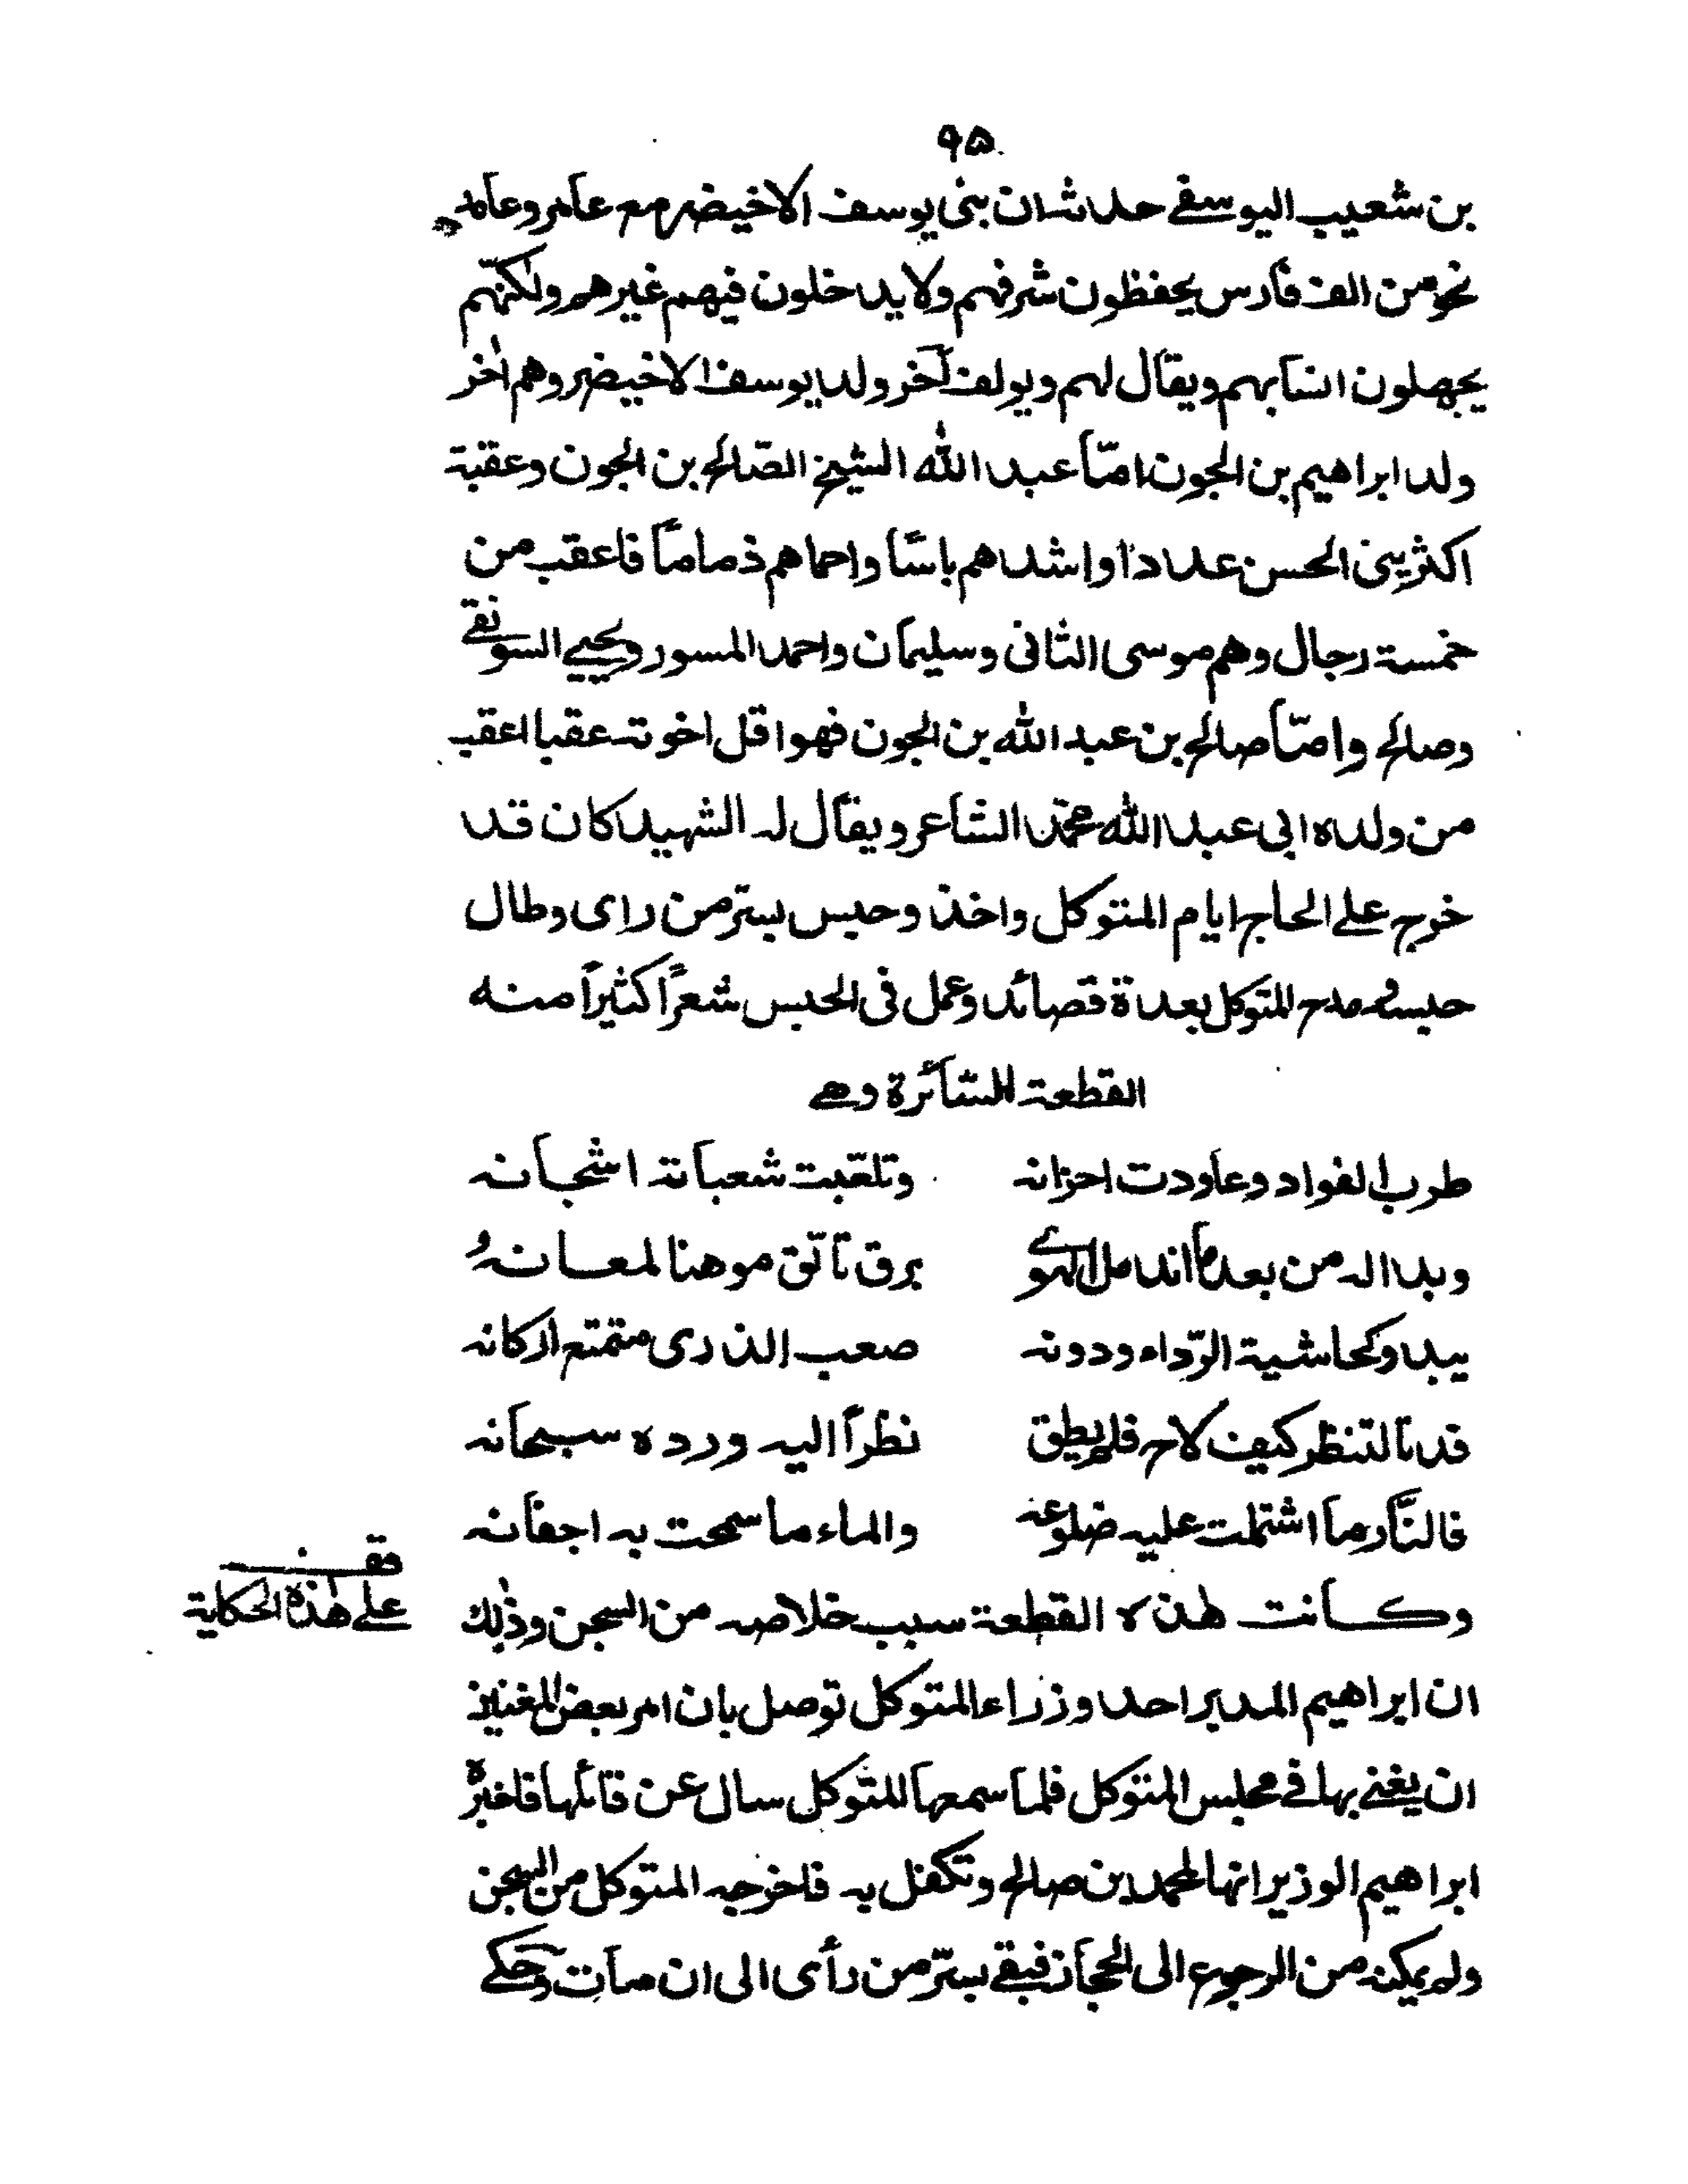 ٩٥
بن شعيب اليوسفے حدثه ان بنى يوسف الاخيضر مع عامر وعايد
نحو من الف فارس يحفظون شرفهم ولا يدخلون فيهم غيرهم ولكنّهم
يجهلون انسابهم ويقال لهم ويولف آخر ولد يوسف الاخيضر وهم اٰخر
ولد ابراهيم بن الجون امّا عبد اللّٰه الشيخ الصّالح بن الجون وعقبة
اكثر بنى الحسن عددا واشدهم باسًا واحماهم ذماماً فاعقب من
خمسة رجال وهم موسى الثانى وسليمان واحمد المسور ويحيے السوىقے
وصالح وامّا صالح بن عبد اللّٰه بن الجون فهو اقل اخوته عقبا اعقب
من ولده ابى عبد اللّٰه محمّد الشاعر ويقال له الشهيد كان قد
خرج علے الحاج ايام المتوكل واخذ وحبس بسرّمن راى وطال
حبسه ومدح المتوكل بعدة قصائد وعمل فى الحبس شعراً كثيراً منه
القطعة السائرة وهے
طرب الفواد وعاودت احزانه وتلعّبت شعباته اشجانه
وبدا له من بعد ما اندمل الهوے برق تألّق موهنا لمعانهُ
يبدو كحاشية الرّداء ودونه صعب الذرى متمتع اركانه
قدنا لتنظر كيف لاح فلم يطق نظراً اليه ورده سبحانه
فالنّار ما اشتملت عليه ضلوعه والماء ما سمحت به اجفانه
وكانت هٰذه القطعة سبب خلاصه من السجن وذٰلك
قف
علے هٰذه الحكاية
ان ابراهيم المدبر احد وزراء المتوكل توصل بان امر بعض المغنين
ان يغنے بها فے مجلس المتوكل فلما سمعها المتوكل سال عن قائلها فاخبره
ابراهيم الوزير انها لمحمد بن صالح وتكفل به فاخرجه المتوكل من السجن
ولم يمكنه من الرجوع الى الحجاز فبقے بسرّمن رأى الى ان مات وحكے